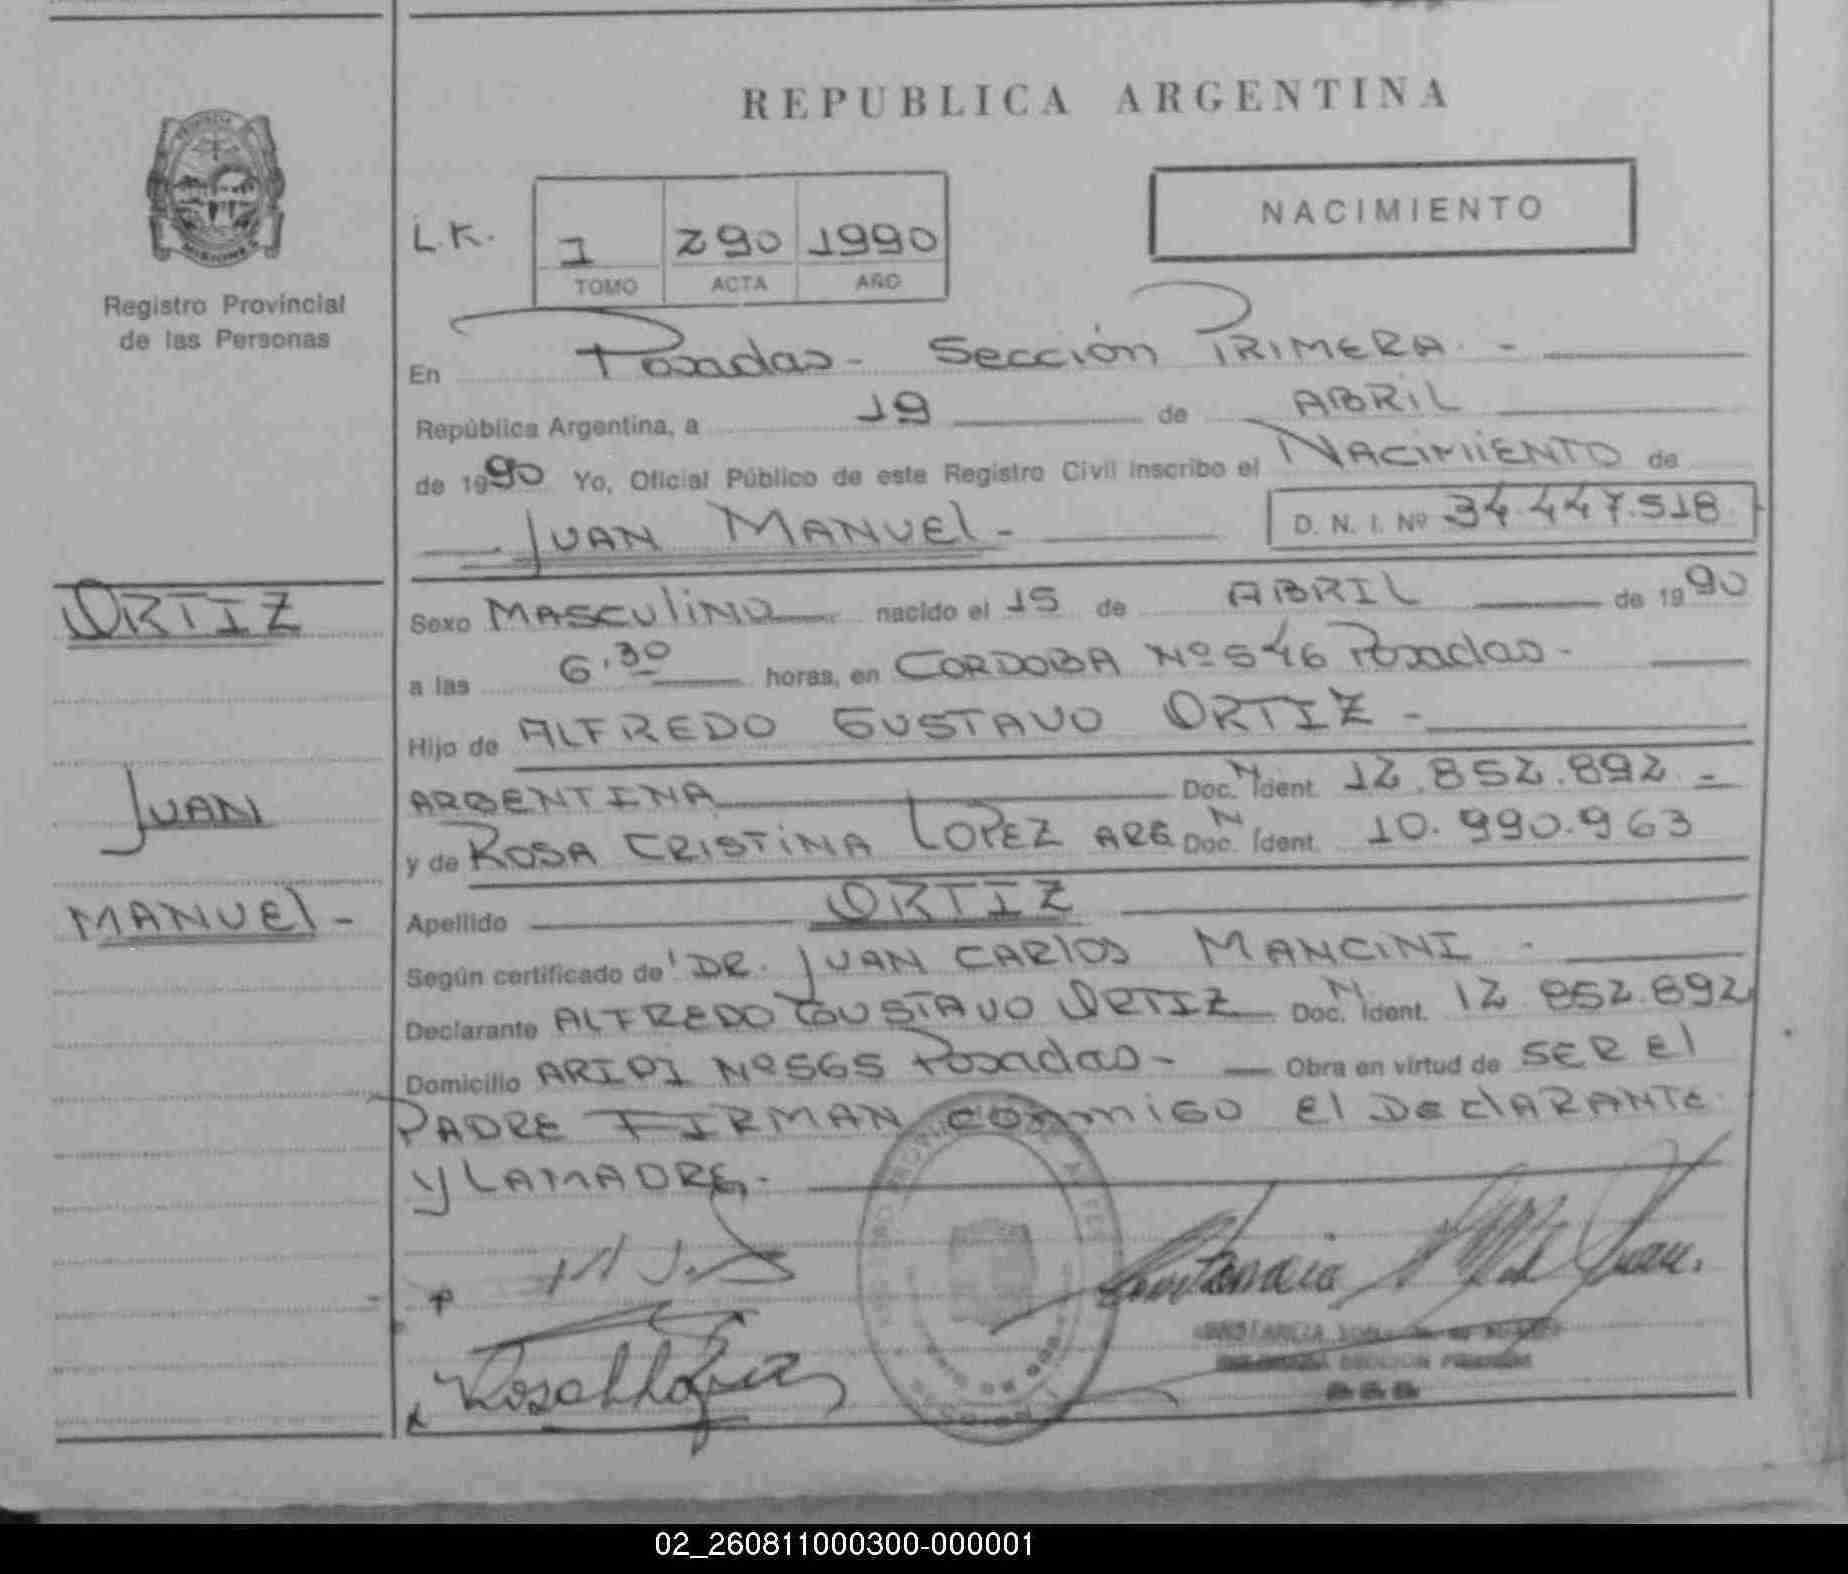 REPUBLICA ARGENTINA
PROVINCIA
MISIONES
Registro Provincial
de las Personas
NACIMIENTO
L.K. 1 290 1990
TOMO ACTA AÑO
En Posadas - Sección PRIMERA. -
República Argentina, a 19 de ABRIL
de 1990 Yo, Oficial Público de este Registro Civil inscribo el NACIMIENTO de
JUAN MANUEl - D. N. I. Nº 34.447.518
ORTIZ
JUAN
MANUEl -
Sexo MASCUlINO nacido el 15 de ABRIL de 1990
a las 6.30 horas, en CORDOBA Nº 546 Posadas -
Hijo de ALFREDO GUSTAVO ORTIZ -
ARGENTINA Doc. N Ident. 12.852.892 -
y de ROSA CRISTINA LOPEZ ARG Doc. N Ident. 10.990.963
Apellido ORTIZ
Según certificado de DR. JUAN CARlOS MANCINI -
Declarante ALFREDO GUSTAVO ORTIZ Doc. N Ident. 12 852.892
Domicilio Nº 565 Posadas - Obra en virtud de SER El
PADRE FIRMAN CONMIGO El DEClARANTE
y LA MADRE. -
SECCION PRIMERA
02_260811000300-000001